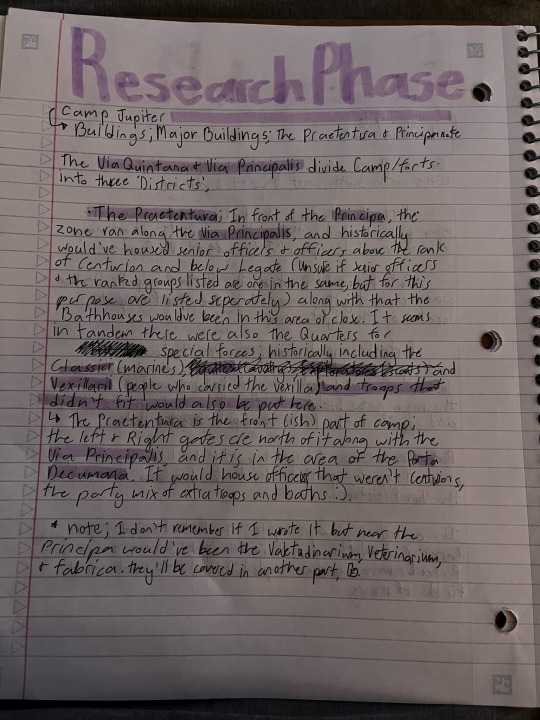 Research Phase
Camp Jupiter
Buildings; Major Buildings; The Praetentura & Principa note
The Via Quintana & Via Principalis divide Camp/forts
into three 'Districts',
• The Praetentura; In front of the Principa, the
zone ran along the Via Principalis, and historically
would've housed senior officers & officers above the rank
of Centurion and below Legate (Unsure if senior officers
& the ranked groups listed are one in the same, but for this
purpose are listed seperately) along with that the
Bathhouses would've been in this area or close. It seems
in tandem there were also the Quarters for
special forces; historically including the
Classici (marines), and
Vexillarii (people who carried the vexilla) and troops that
didn't fit would also be put here.
↳ The Praetentura is the front (ish) part of camp;
the left & Right gates are north of it along with the
Via Principalis, and it is in the area of the Porta
Decumana. It would house officers that weren't Centurions,
the party mix of extra troops and baths :).
* note; I don't remember if I wrote it but near the
Principa would've been the Valetudinarium, Veterinarium,
& fabrica. they'll be covered in another part,